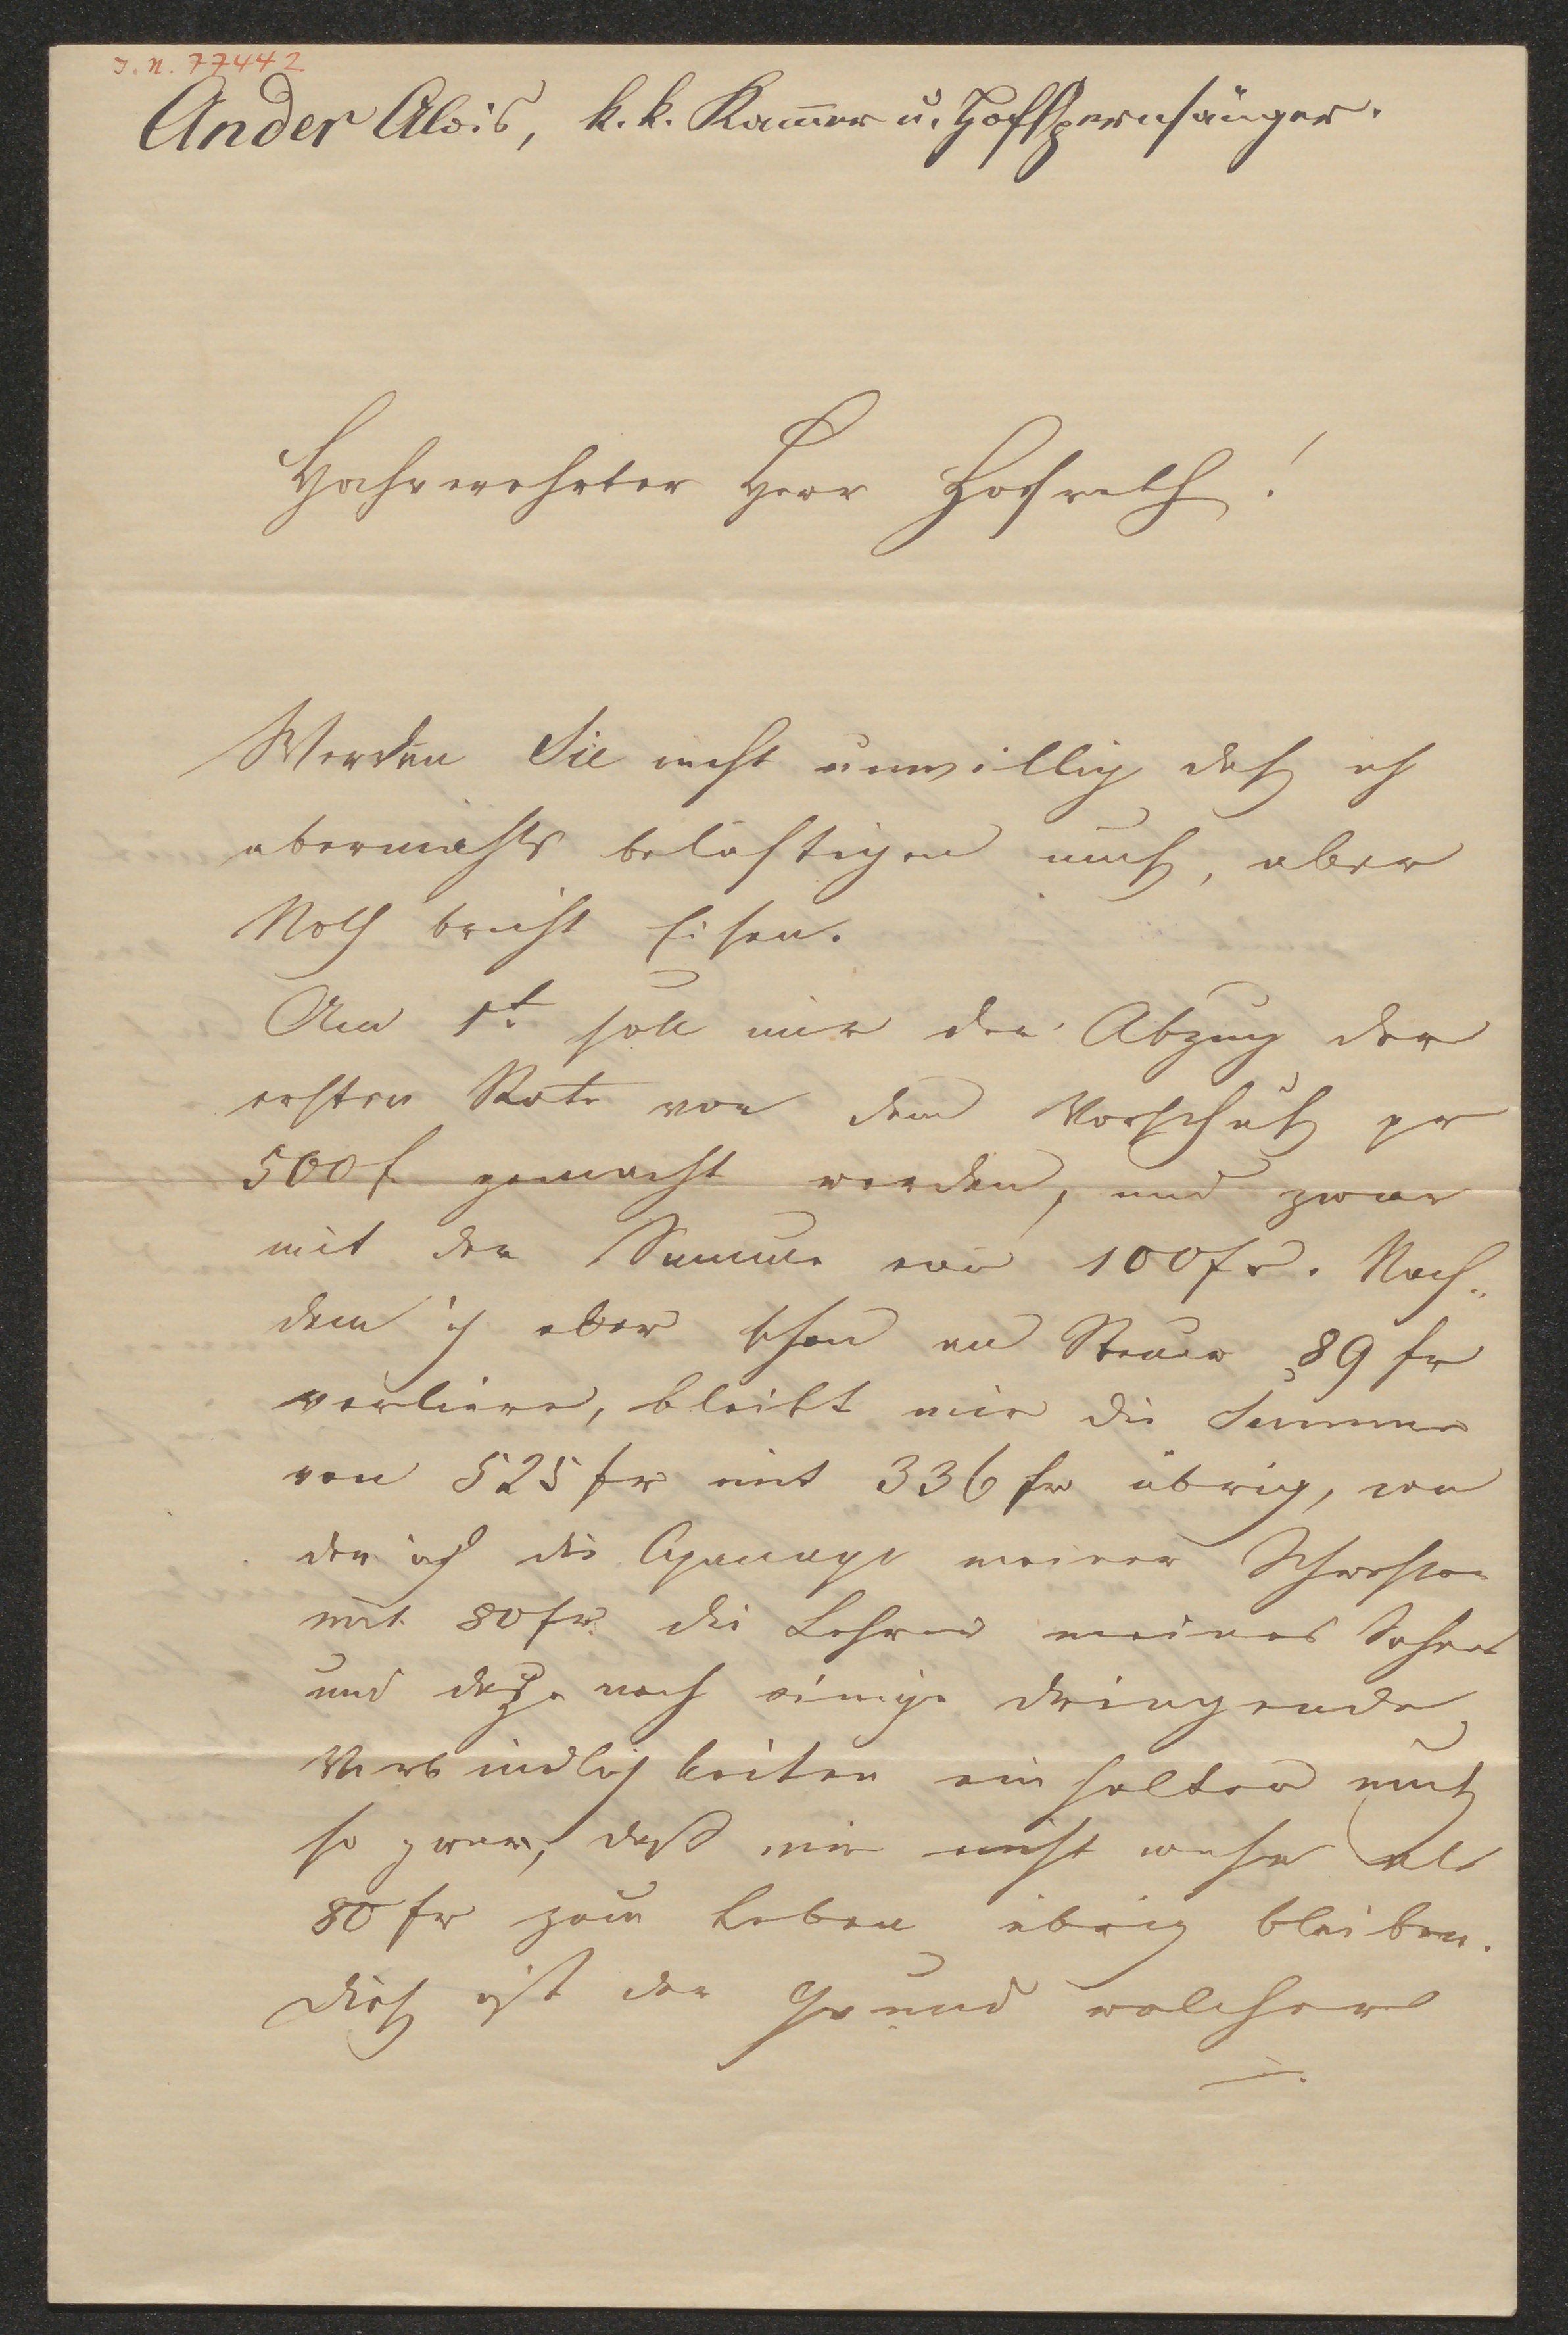 I. N. 77442
Ander Alois, k. k. Kam̅er u. Hofopernsänger.
Hochverehrter Herr Hofrath!
Werden Sie nicht unwillig daß ich
abermahls belästigen muß, aber
Noth bricht Eisen.
Am 1t. soll mir der Abzug der
ersten Rate von dem Vorschuß pr
500 f gemacht werden, und zwar
mit der Summe von 100 fr. Nach„
dem ich aber schon an Steuer 89 fr
verliere, bleibt mir die Summe
von 525 fr mit 336 fr übrig, von
der ich die Apanage meiner Schwester
mit 80 fr. die Lehrer meines Sohnes
und noch einige dringende
Verbindlichkeiten einhalten muß
so zwar, daß mir nicht mehr als
80 fr zum Leben übrig bleiben.
Dieß ist der Grund welcher